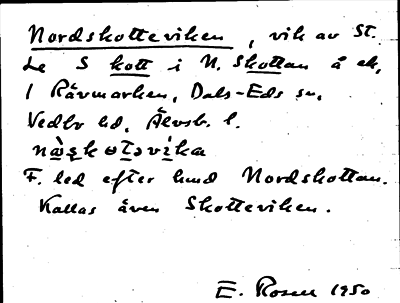 Nordskotteviken, vik av St.
Le S kott i N. Skottan å ek,
i Rävmarken, Dals-Eds sn,
Vedbo hd, Älvsb. l.
F. led efter hmd Nordskottan.
Kallas även Skotteviken.
E. Rosell 1950